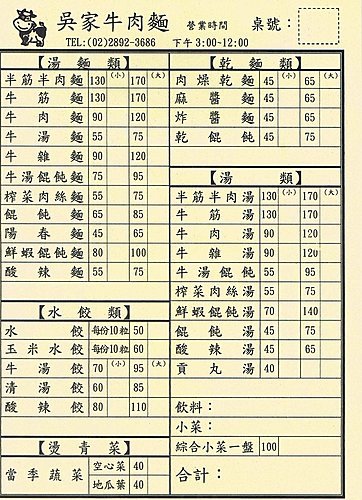 吳家牛肉麵 營業時間 桌號：
TEL:(02)2892-3686 下午3:00~12:00
【湯麵類】
半筋半肉麵 130 (小) 170 (大)
牛筋麵 130 170
牛肉麵 90 120
牛湯麵 55 75
牛雜麵 90 120
牛湯餛飩麵 75 95
榨菜肉絲麵 55 75
餛飩麵 65 85
陽春麵 45 65
鮮蝦餛飩麵 80 100
酸辣麵 55 75
【水餃類】
水餃 每份10粒 50
玉米水餃 每份10粒 60
牛湯餃 70 (小) 95 (大)
清湯餃 60 85
酸辣餃 80 110
【燙青菜】
當季蔬菜 空心菜 40
地瓜葉 40
【乾麵類】
肉燥乾麵 45 (小) 65 (大)
麻醬麵 45 65
炸醬麵 45 65
乾餛飩 45 65
【湯類】
半筋半肉湯 130 (小) 170 (大)
牛筋湯 130 170
牛肉湯 90 120
牛雜湯 90 120
牛湯餛飩 55 95
榨菜肉絲湯 55 75
鮮蝦餛飩湯 70 140
餛飩湯 45 75
酸辣湯 45 65
貢丸湯 40
飲料：
小菜：
綜合小菜一盤 100
合計：